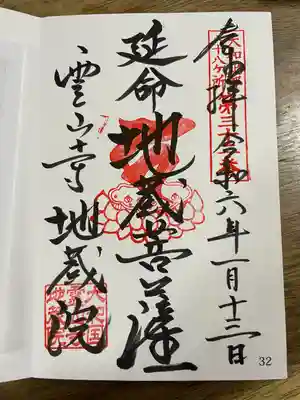 奉拝 令和六年一月十三日
延命地蔵菩薩
霊山寺 地蔵院
32